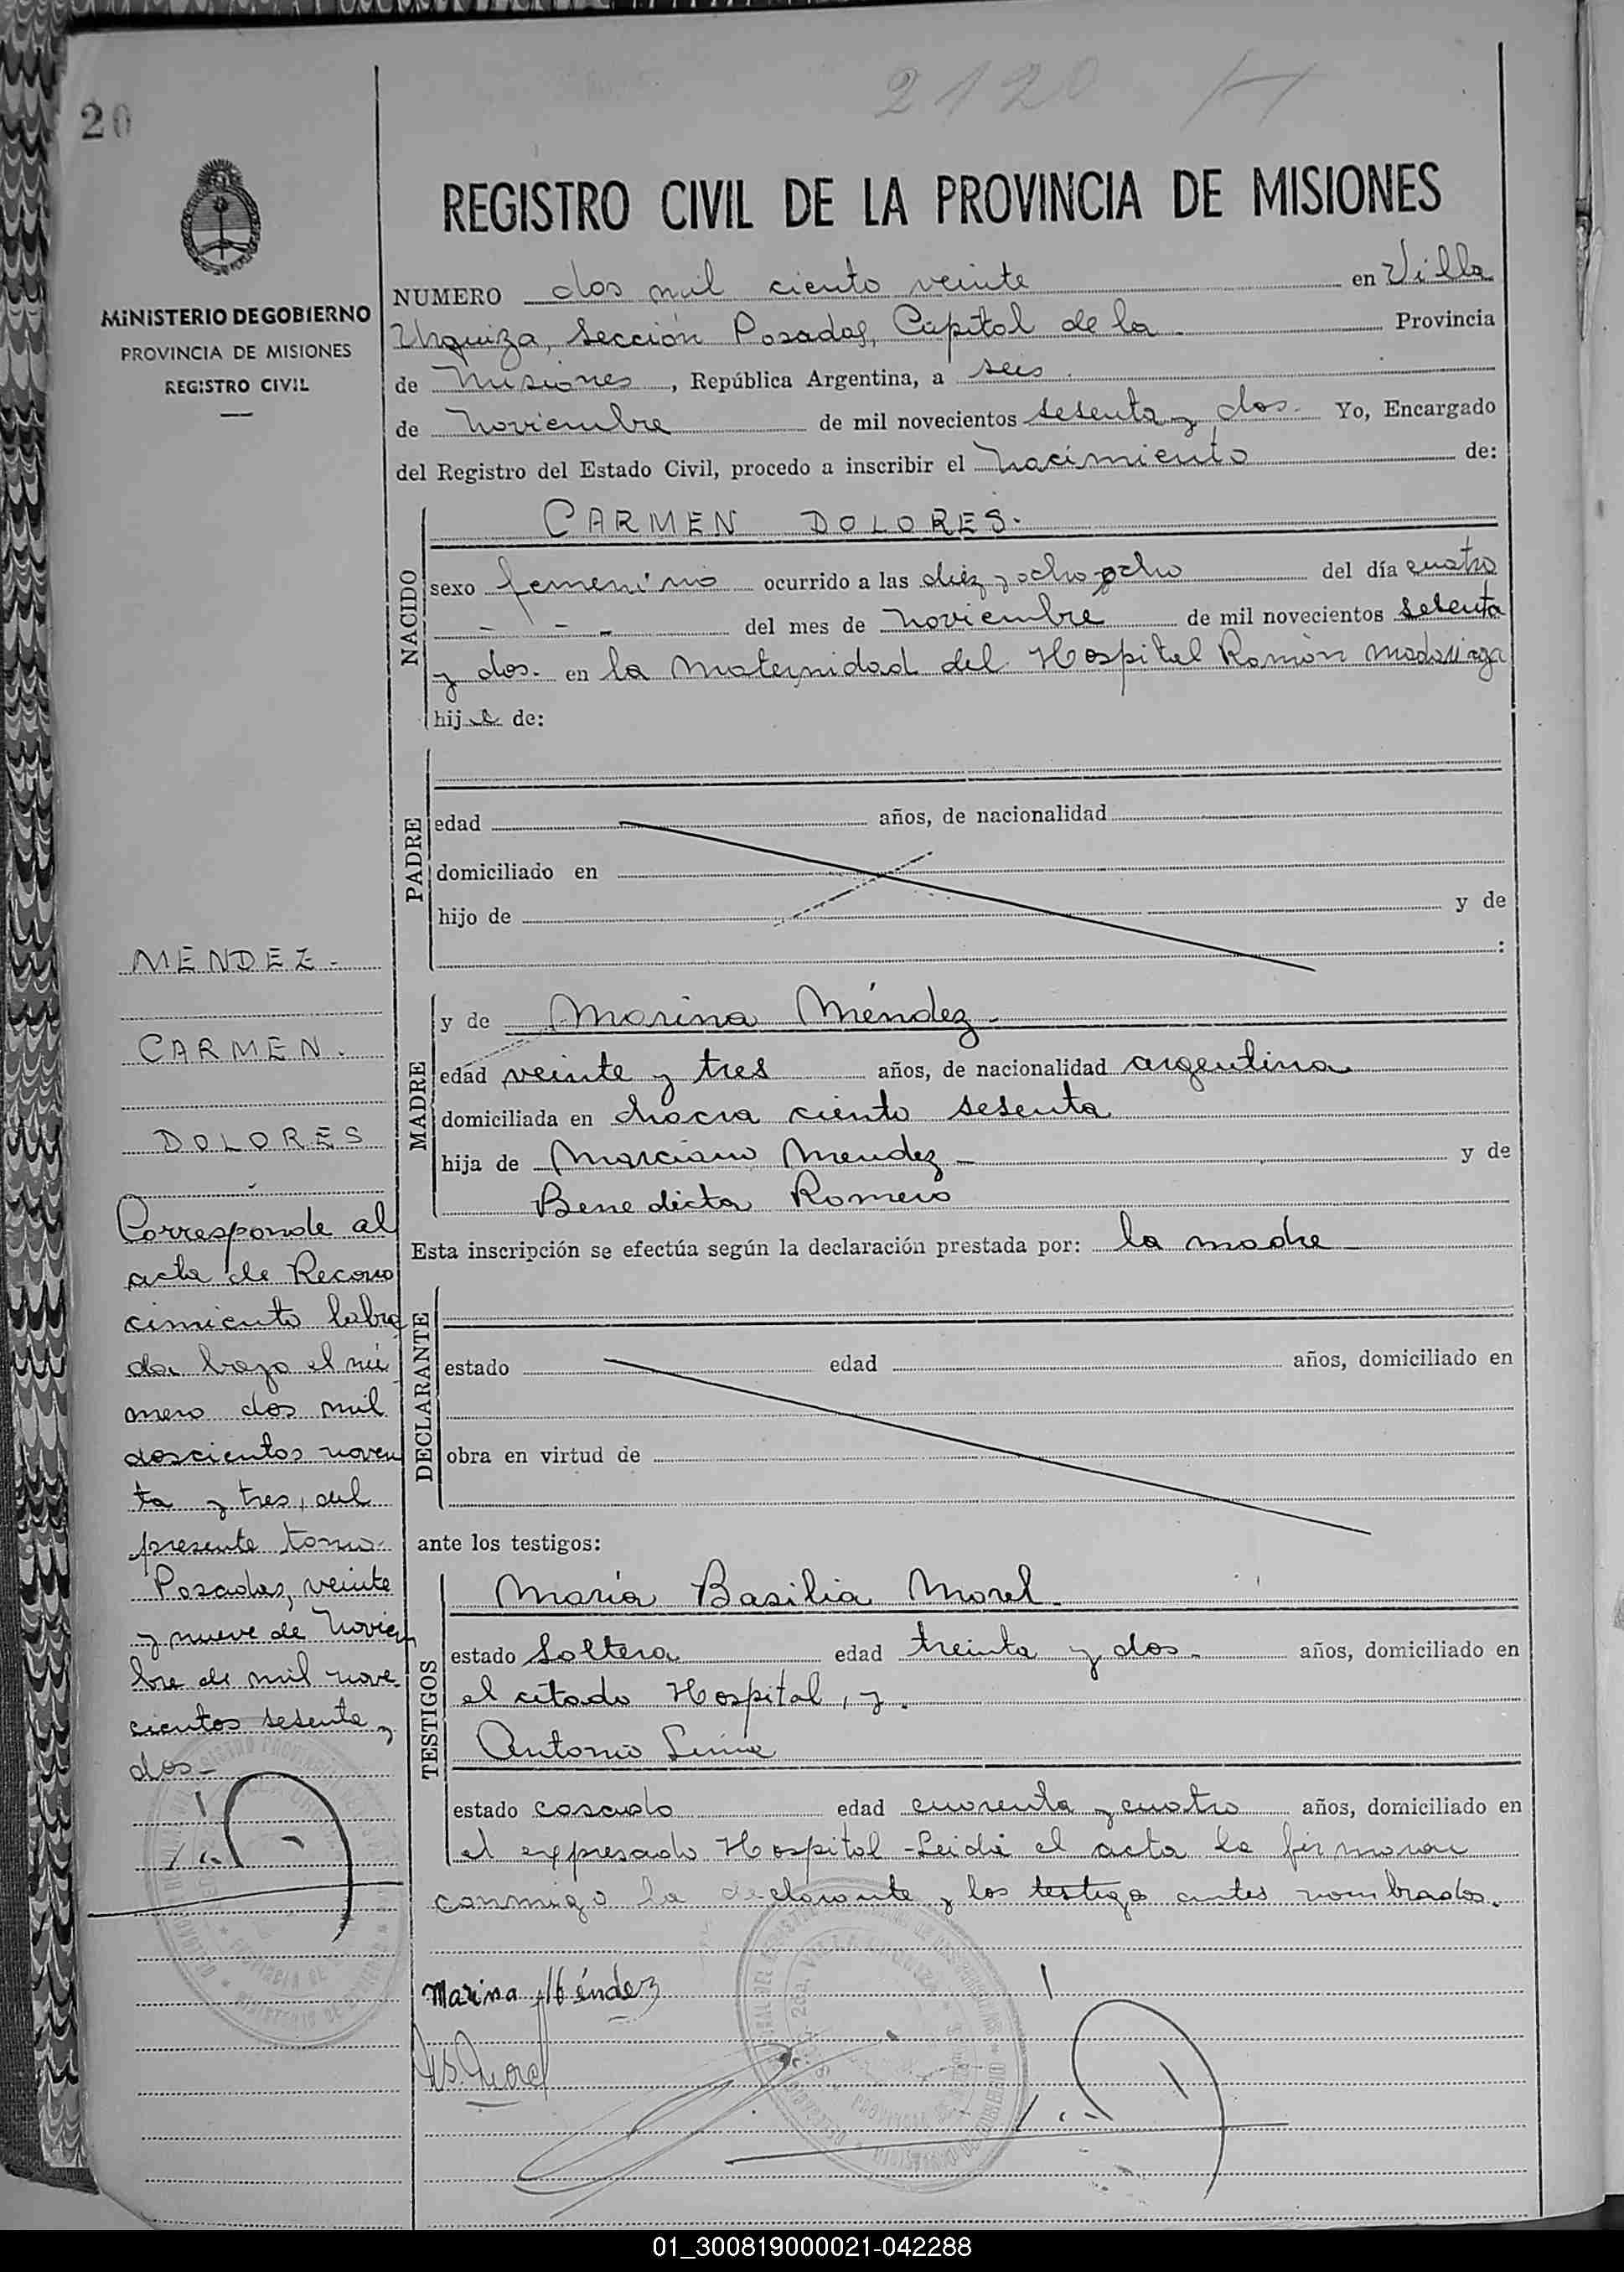 2120
20
REGISTRO CIVIL DE LA PROVINCIA DE MISIONES
MINISTERIO DE GOBIERNO
PROVINCIA DE MISIONES
REGISTRO CIVIL
NUMERO dos mil ciento veinte en Villa
Urquiza, Sección Posadas, Capital de la Provincia
de Misiones, República Argentina, a seis
de Noviembre de mil novecientos sesenta y dos. Yo, Encargado
del Registro del Estado Civil, procedo a inscribir el Nacimiento de:
NACIDO
CARMEN DOLORES.
sexo femenino ocurrido a las diez y ocho del día cuatro
- - - del mes de Noviembre de mil novecientos sesenta
y dos. en la Maternidad del Hospital Ramón Madariaga
hija de:
PADRE
edad años, de nacionalidad
domiciliado en
hijo de y de
:
MADRE
y de Marina Méndez -
edad veinte y tres años, de nacionalidad argentina
domiciliada en chacra ciento sesenta
hija de Marciano Mendez - y de
Benedicta Romero
Esta inscripción se efectúa según la declaración prestada por: la madre
DECLARANTE
estado edad años, domiciliado en
obra en virtud de
ante los testigos:
TESTIGOS
María Basilia Morel.
estado Soltera edad treinta y dos. años, domiciliado en
el citado Hospital, y.
Antonio
estado casado edad cuarenta y cuatro años, domiciliado en
el expresado Hospital - Leida el acta la firmaron
conmigo la declarante y los testigos antes nombrados.
Marina Méndez
MENDEZ -
CARMEN.
DOLORES
Corresponde al
acta de Recono
cimiento labra
da bajo el nú
mero dos mil
doscientos noven
ta y tres, del
presente tomo.
Posadas, veinte
y nueve de Noviem
bre de mil nove
cientos sesenta y
dos -
01_300819000021-042288